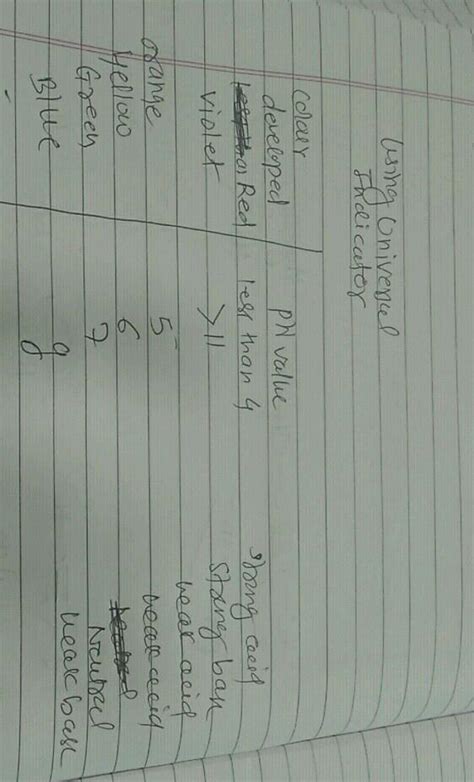 Using Universal
Indicator
Colour
developed pH value
Red less than 4 strong acid
violet >11 Strong base
Orange 5 weak acid
Yellow 6 weak acid
Green 7 Neutral
Blue 9 weak base